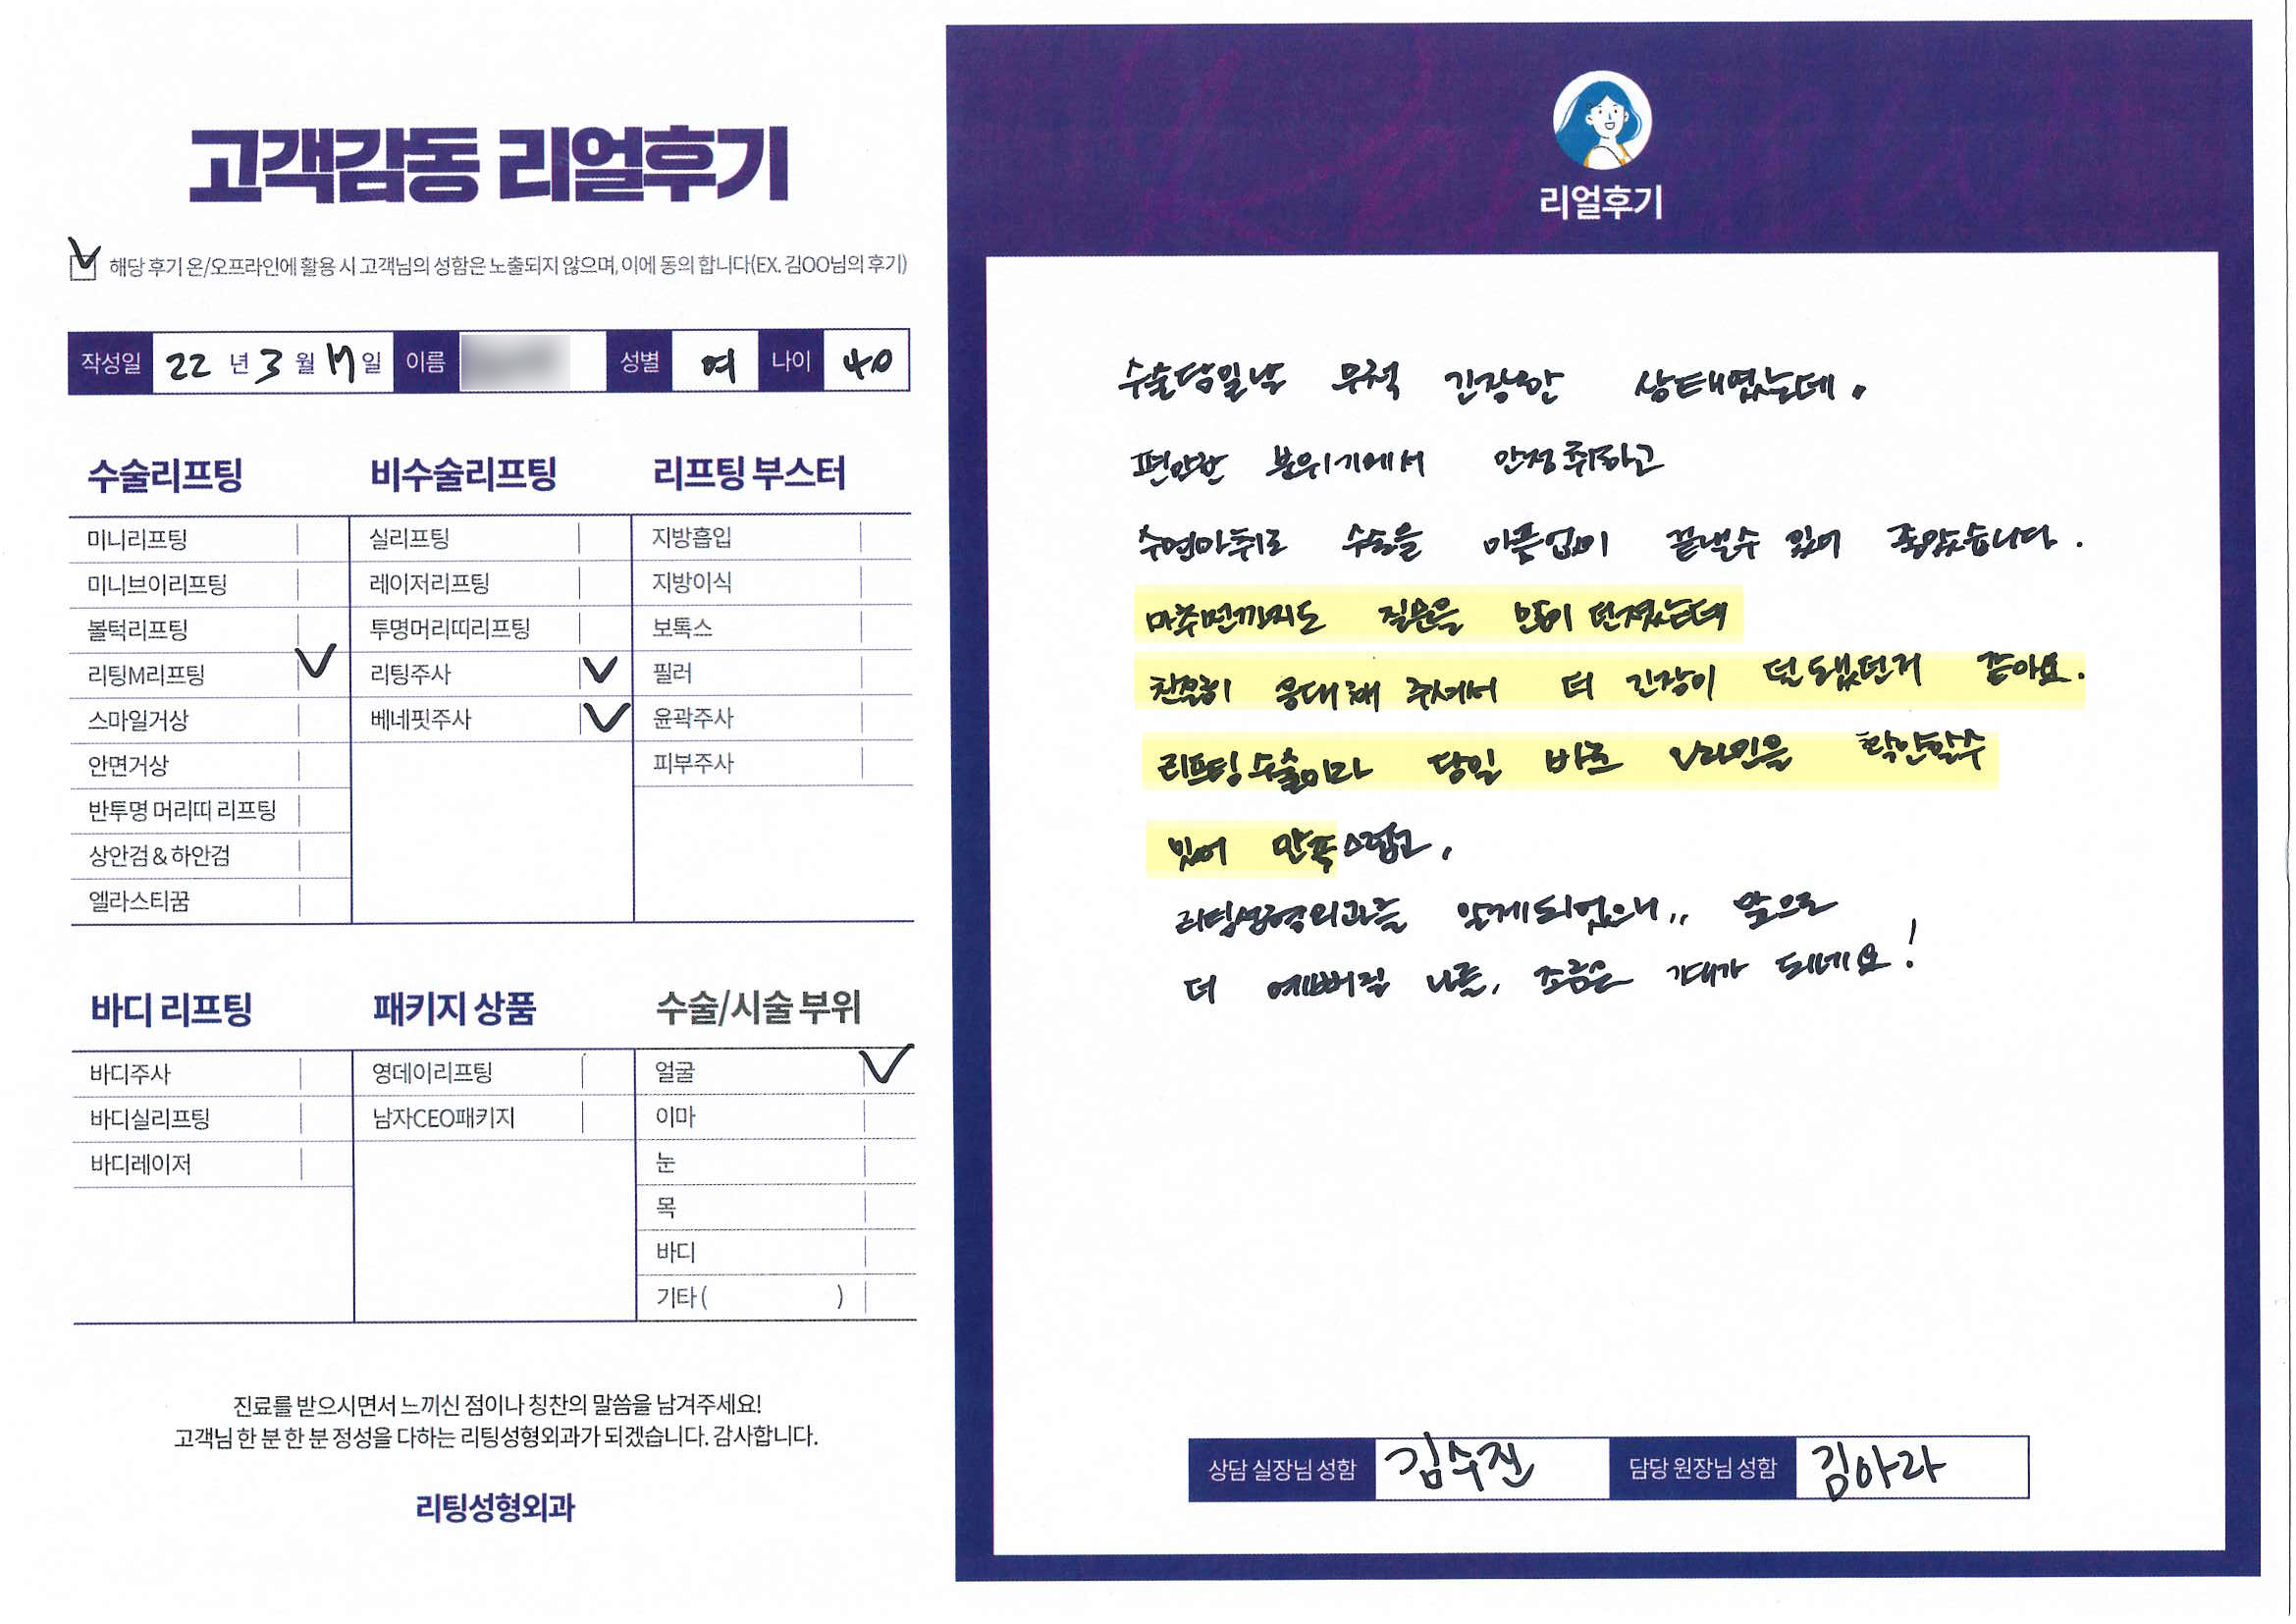 고객감동 리얼후기
해당 후기 온/오프라인에 활용 시 고객님의 성함은 노출되지 않으며, 이에 동의 합니다(EX. 김OO님의 후기)
작성일 22 년 3 월 17 일 이름 성별 여 나이 40
수술리프팅
미니리프팅
미니브이리프팅
볼턱리프팅
리팅M리프팅
스마일거상
안면거상
반투명 머리띠 리프팅
상안검 & 하안검
엘라스티꿈
비수술리프팅
실리프팅
레이저리프팅
투명머리띠리프팅
리팅주사
베네핏주사
리프팅 부스터
지방흡입
지방이식
보톡스
필러
윤곽주사
피부주사
바디 리프팅
바디주사
바디실리프팅
바디레이저
패키지 상품
영데이리프팅
남자CEO패키지
수술/시술 부위
얼굴
이마
눈
목
바디
기타 ( )
진료를 받으시면서 느끼신 점이나 칭찬의 말씀을 남겨주세요!
고객님 한 분 한 분 정성을 다하는 리팅성형외과가 되겠습니다. 감사합니다.
리팅성형외과
리얼후기
수술당일날 무척 긴장한 상태였는데.
편안한 분위기에서 안정취하고
수면마취로 수술을 아픔없이 끝낼수 있어 좋았습니다.
마취전까지도 질문을 많이 던졌는데
친절히 응대해 주셔서 더 긴장이 덜 됐던거 같아요.
리프팅수술이라 당일 바로 V라인을 확인할수
있어 만족스럽고,
리팅성형외과를 알게되었으니,, 앞으로
더 예뻐질 나를, 조금은 기대가 되네요!
상담 실장님 성함 김수진 담당 원장님 성함 김아라